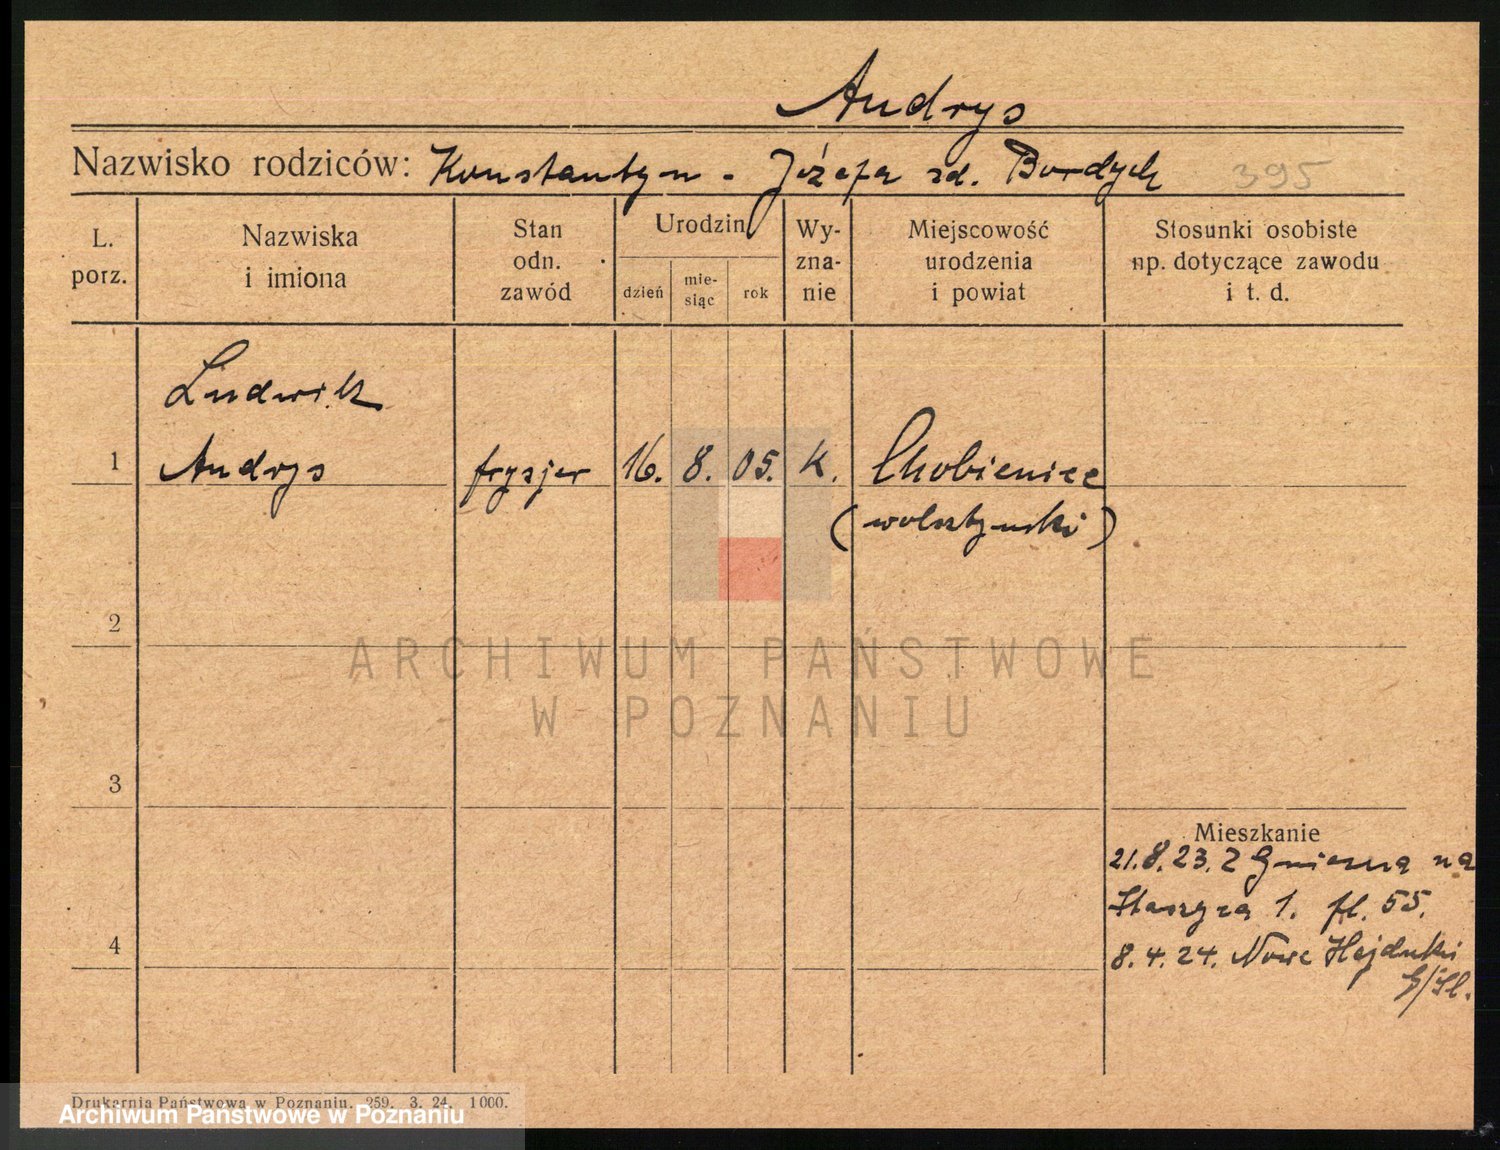 Andrys
Nazwisko rodziców: Konstantyn - Józefa zd. Bordych 395
L. porz.
Nazwiska i imiona
Stan odn. zawód
Urodzin
dzień
mie-
siąc
rok
Wy-
zna-
nie
Miejscowość urodzenia i powiat
Stosunki osobiste np. dotyczące zawodu i t. d.
Ludwik
1 Andrys fryzjer 16. 8. 05. k. Chobienice
(wolsztyński)
2
ARCHIWUM PAŃSTWOWE
W POZNANIU
3
Mieszkanie
21.8.23. Z Gniezna na
Staszyca 1. fl. 55.
4
8.4.24. Nowe Hajduki
G/Śl.
Drukarnia Państwowa w Poznaniu. 259. 3. 24. 1000.
Archiwum Państwowe w Poznaniu